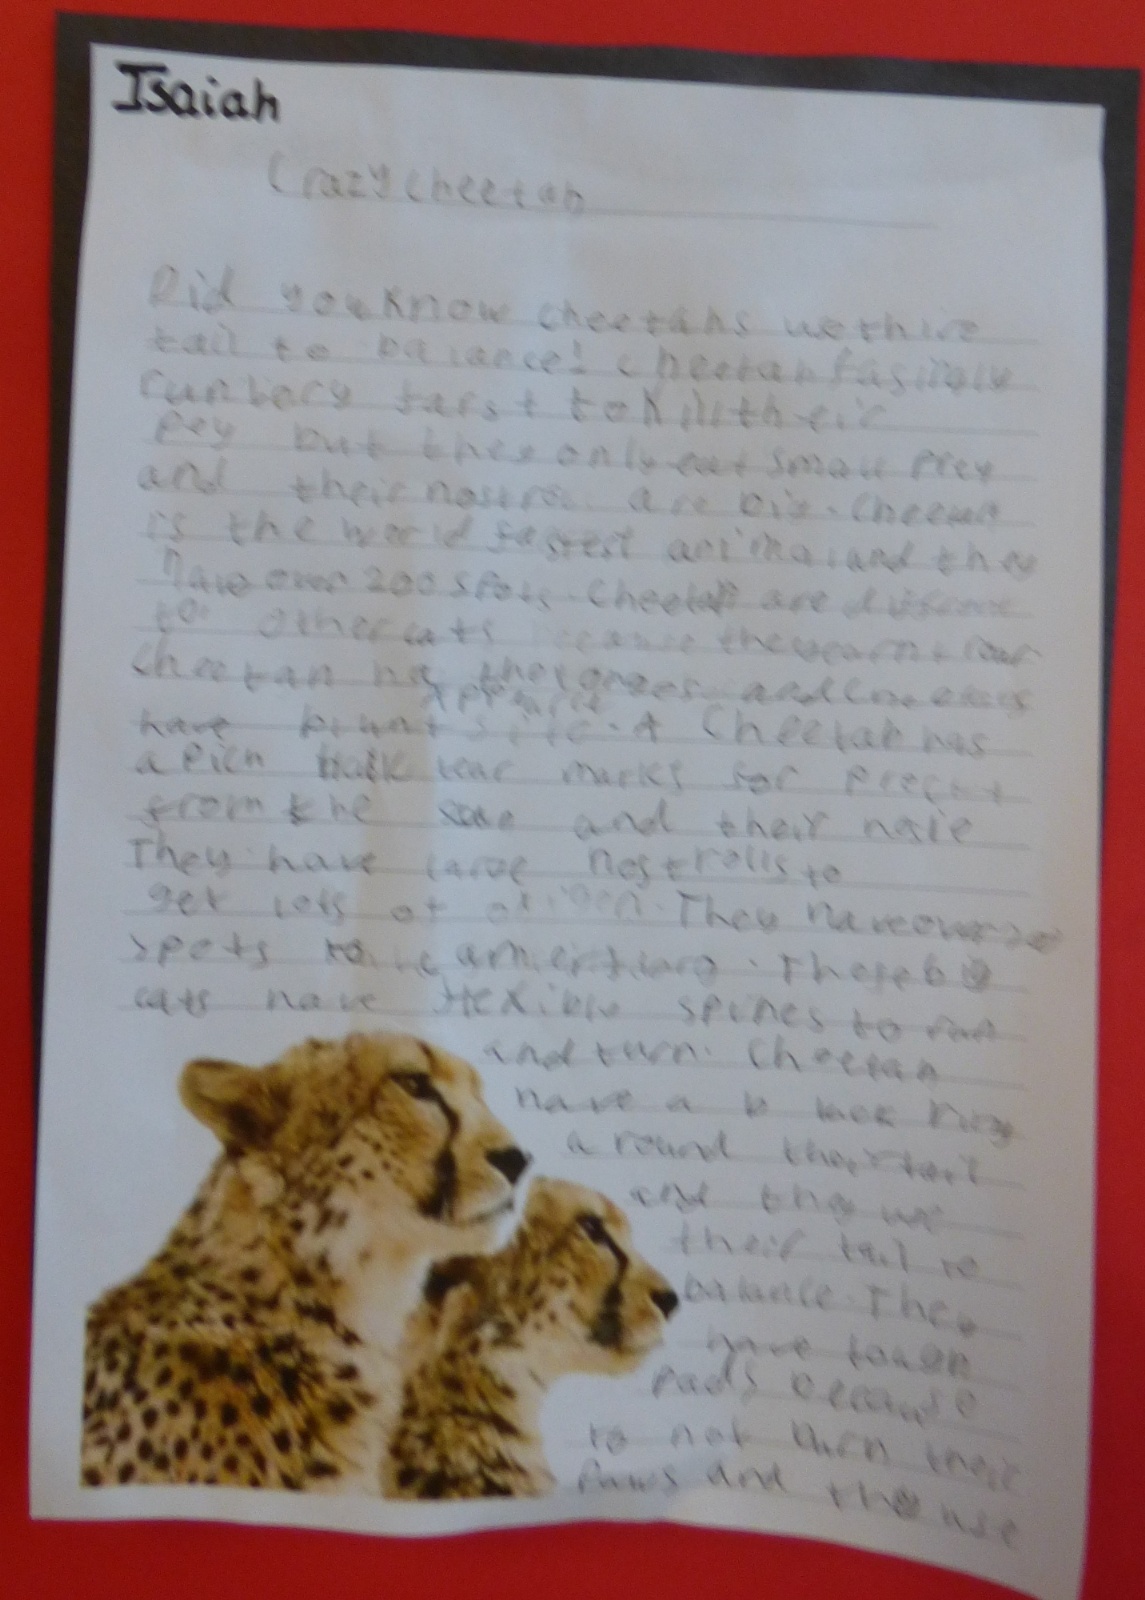 Isaiah
Crazy cheetah
Did you know cheetahs use thire
tail to balance! cheetah
run tarst to kill their
pey but they only eat small prey
and their are big. Cheetah
is the world fastest animal and they
have over 200 spots. Cheetah are
to other cats because they carn't roar
cheetah and
have A Cheetah has
a black tear marks for
from the and their nosie
They have large nostrolls to
get lots of oxigen. They have over
spots These big
cats have flexible spines to run
and turn. Cheetah
have a black ring
around their tail
and they use
their tail to
balance. They
have tough
pads because
to not burn their
paws and they use